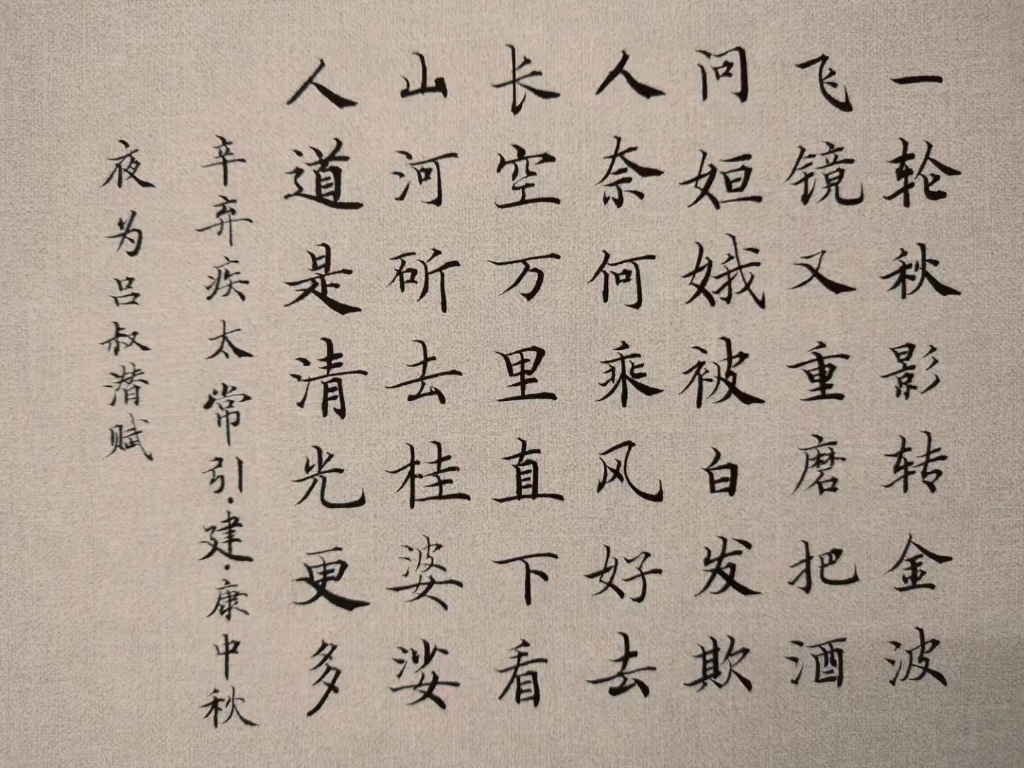 一轮秋影转金波
飞镜又重磨把酒
问姮娥被白发欺
人奈何乘风好去
长空万里直下看
山河斫去桂婆娑
人道是清光更多
辛弃疾太常引·建·康中秋
夜为吕叔潜赋